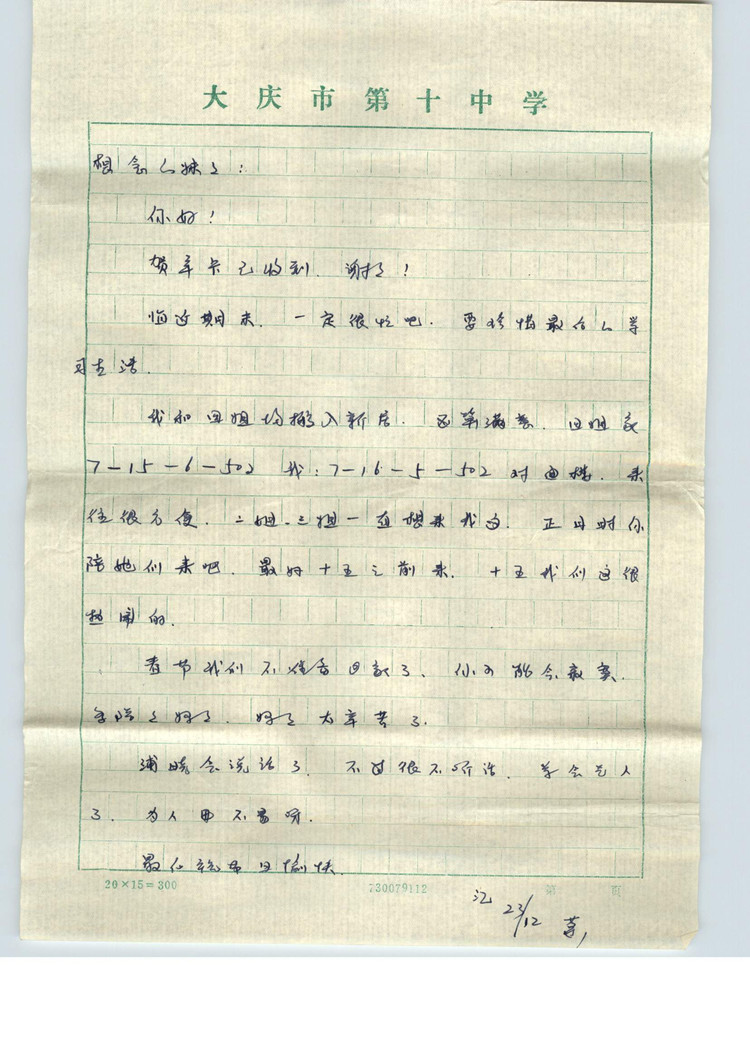 大庆市第十中学
想念的妹妹：
你好！
贺年卡已收到．谢谢！
临近期末．一定很忙吧．要珍惜最后的学
习生活．
我和四姐均搬入新居．还算满意．四姐家
7-15-6-502 我：7-16-5-502 对面楼．来
往很方便．二姐．三姐一直想来我这．正月时你
陪她们来吧．最好十五之前来．十五我们这很
热闹的．
春节我们不准备回家了．你可能会寂寞．
多陪妈妈．妈妈太辛苦了．
浦晓会说话了．不过很不听话．学会气人
了．为人母不易呀．
最后祝节日愉快
20×15=300
730079112
第 页
23/12